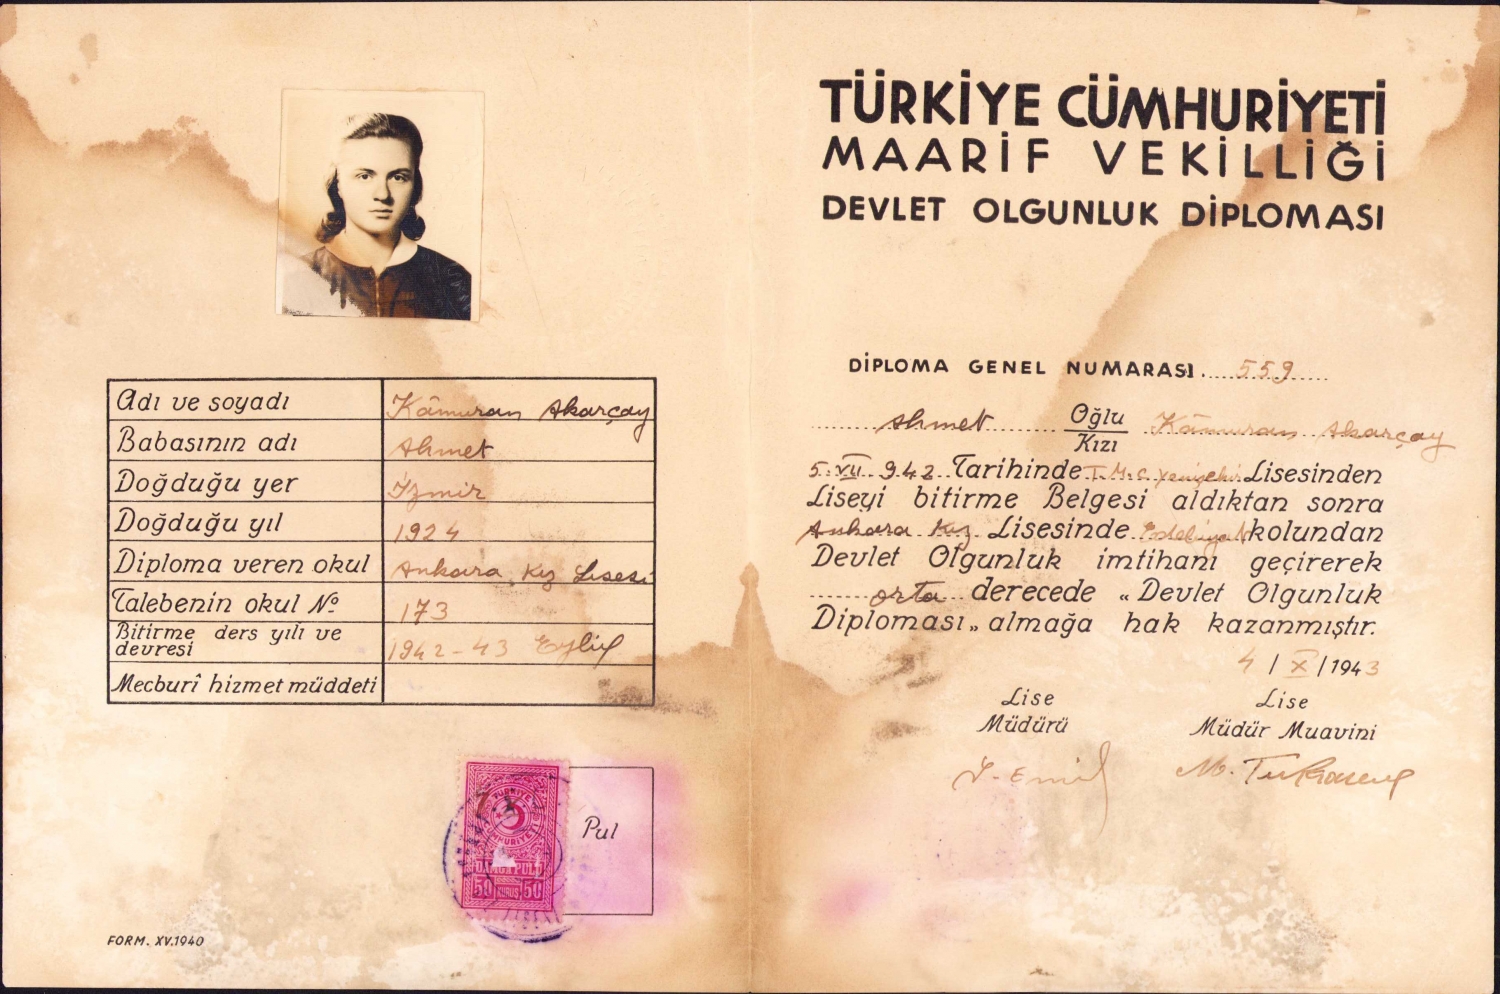 Adı ve soyadı Kâmuran Akarçay
Babasının adı Ahmet
Doğduğu yer İzmir
Doğduğu yıl 1924
Diploma veren okul Ankara Kız Lisesi
Talebenin okul No 173
Bitirme ders yılı ve devresi 1942-43 Eylül
Mecburî hizmet müddeti
TÜRKİYE CÜMHURİYETİ
DAMGA PULU
50 KURUŞ 50
Pul
FORM. XV.1940
TÜRKİYE CÜMHURİYETİ
MAARİF VEKİLLİĞİ
DEVLET OLGUNLUK DİPLOMASI
DİPLOMA GENEL NUMARASI 559
Ahmet Oğlu Kızı Kâmuran Akarçay
5.VII.942 Tarihinde T.M.C. Yenişehir Lisesinden
Liseyi bitirme Belgesi aldıktan sonra
Ankara Kız Lisesinde Edebiyat kolundan
Devlet Olgunluk imtihanı geçirerek
orta derecede „Devlet Olgunluk
Diploması„ almağa hak kazanmıştır.
4 / X / 1943
Lise Müdürü
Lise Müdür Muavini